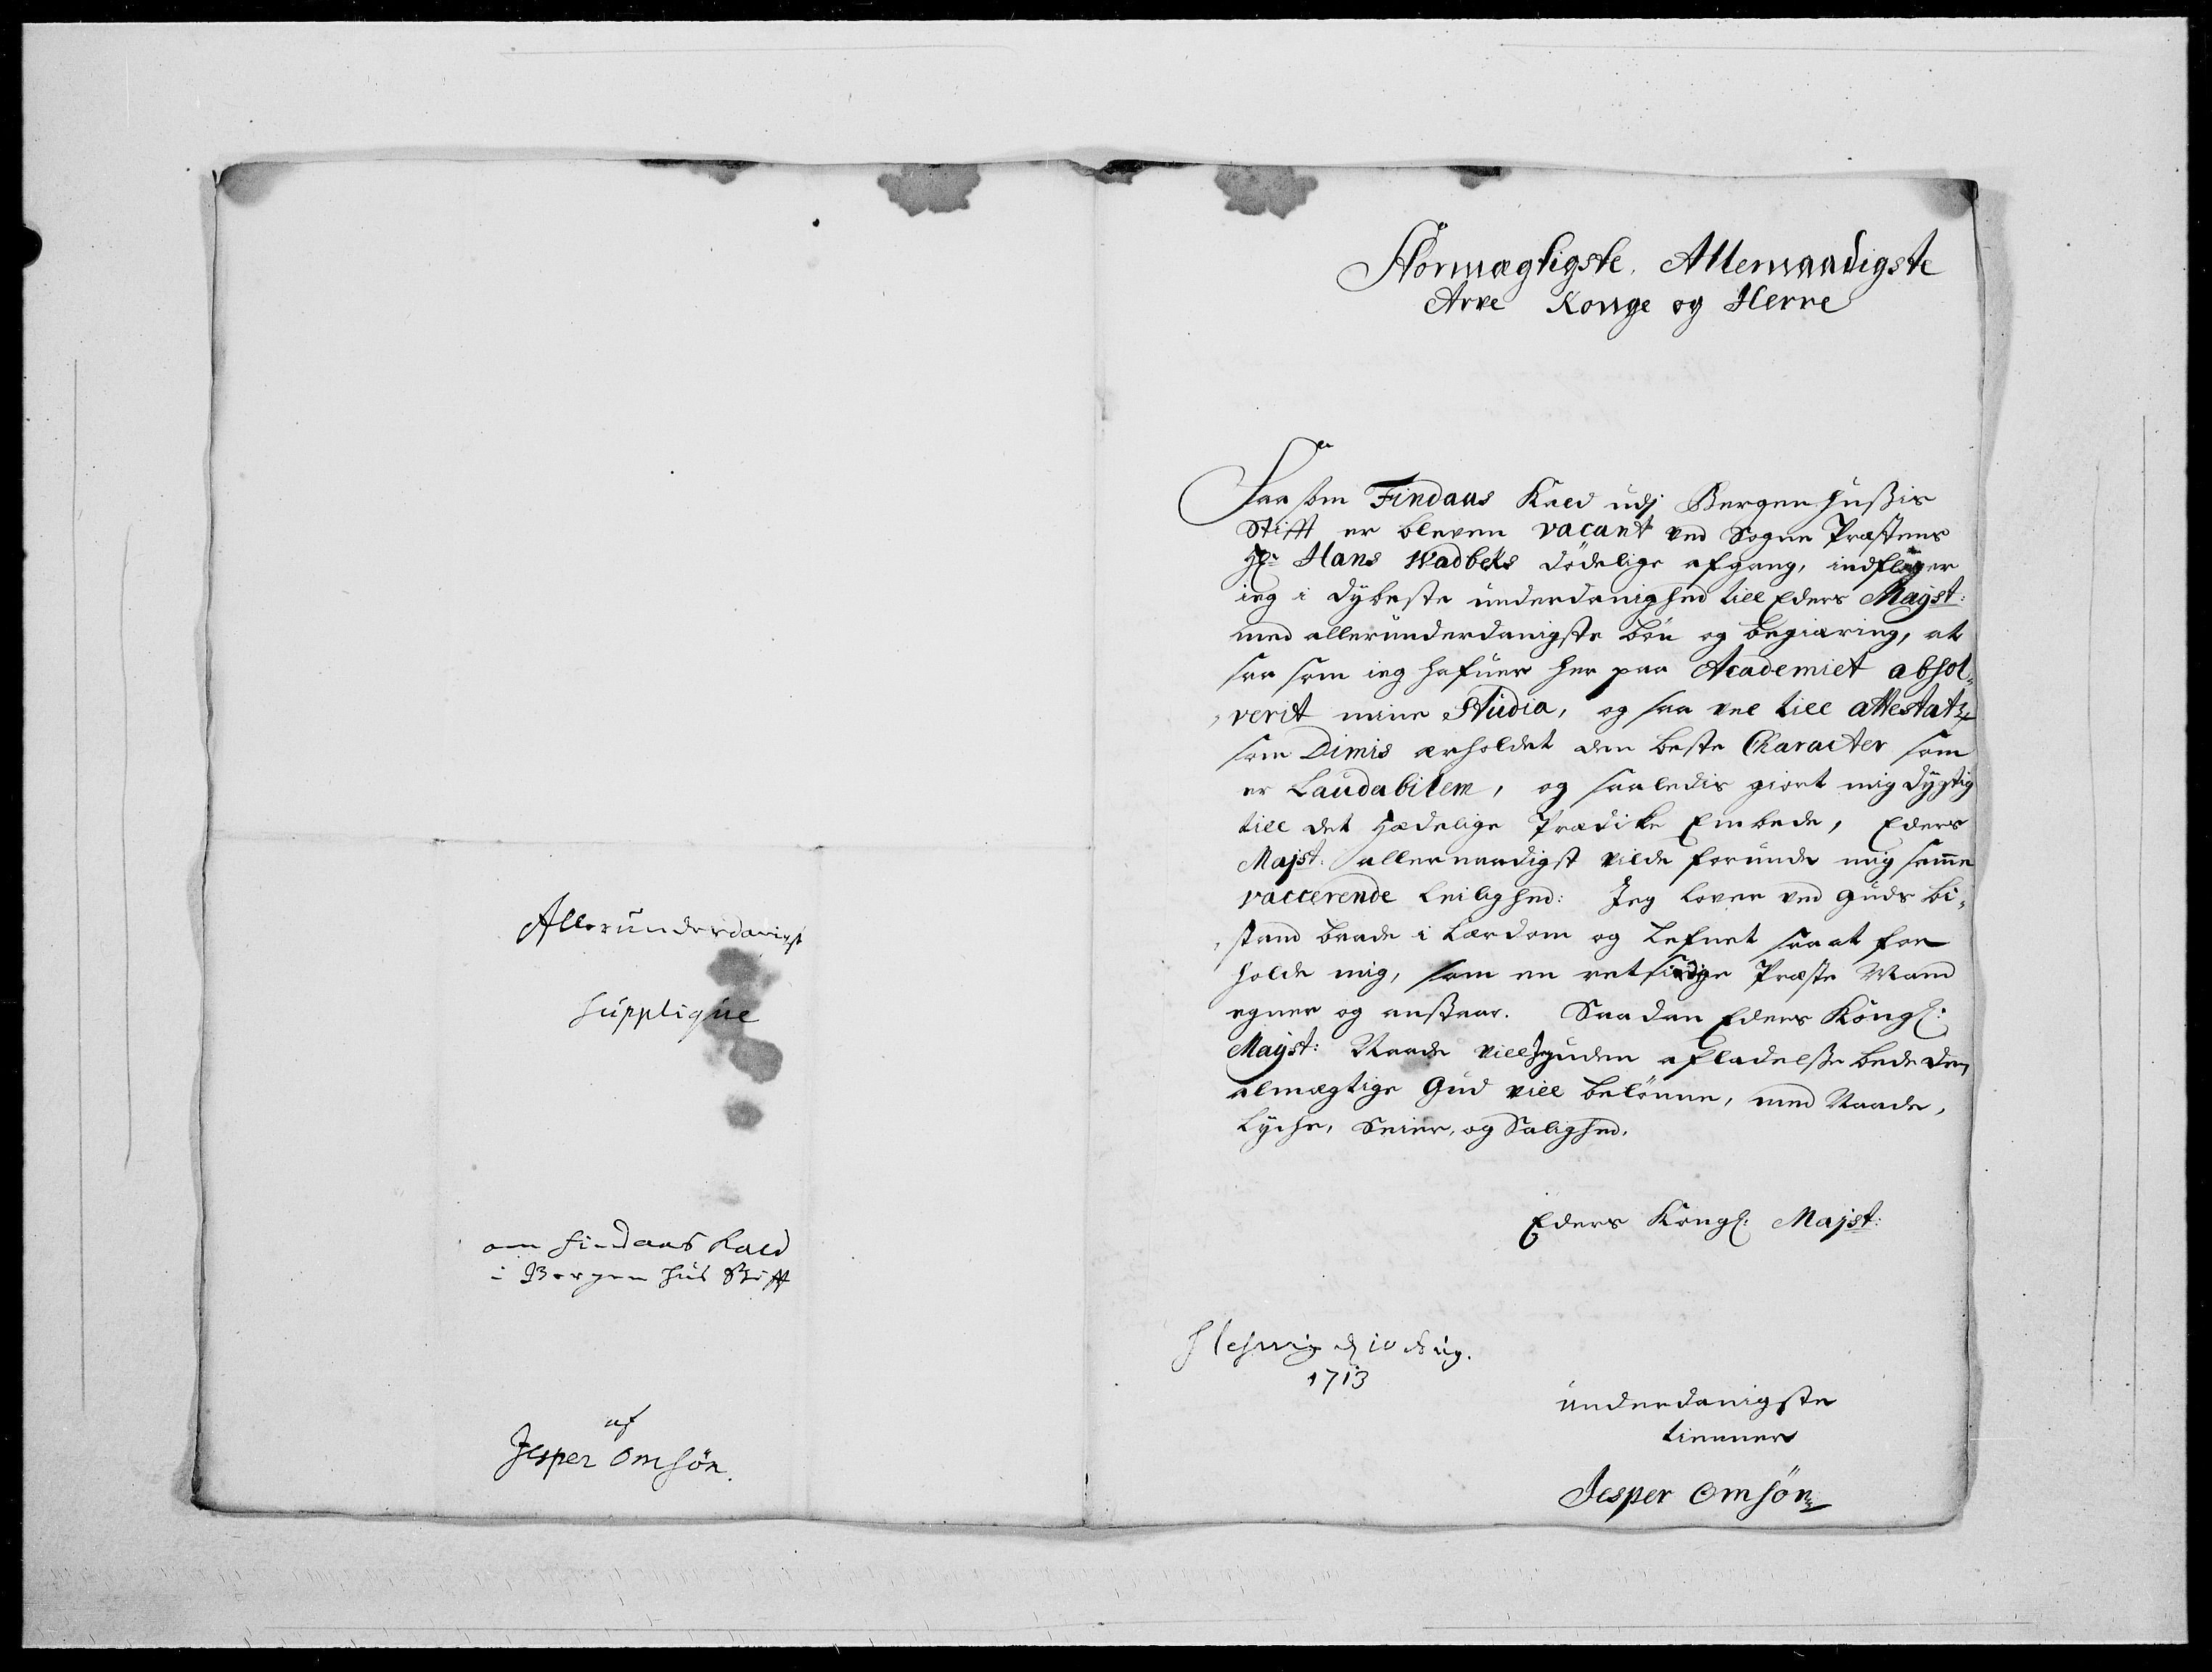 Allerunderdanigst
supplique
om Findaas Kald
i Bergenhus Stifft
af
Jesper Omsön.
Stormægtigste, Allernaadigste
Arve Konge og Herre
Saasom Findaas Kald udj Bergenhußis
Stifft er bleven vacant ved Sogne Præstens
Hr Hans Wadbeks dödelige afgang, indflÿer
ieg i dÿbeste underdanighed till Eders Mayst:
med allerunderdanigste bön og begiæring, at
saa som ieg hafuer her paa Academiet absol„
„verit mine Studia, og saa vel till attestatz
som Dimis erholdet den beste Character som
er Laudabilem, og saaledis giort mig dÿgtig
till det hædelige Prædike Embede, Eders
Majst: allernaadigst vilde forunde mig samme
vaccerende Leilighed: Jeg lover ved Guds bi„
„stand baade i Lærdom og Lefnet saa at for
holde mig, som en retsindige Præste Mand
egner og anstaar. Saadan Eders Kongl:
Mayst: Naade vill Jeg uden afladelße bede den
almægtige Gud vill belönne, med Naade,
Lÿche, Seier, og Salighed.
Eders Kongl: Majst:
Slesvig d 10 Aug.
1713
underdanigste
tienner
Jesper Omsön